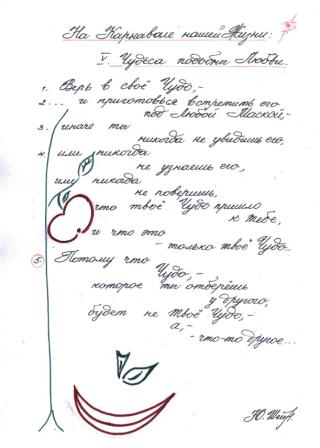 На Карнавале нашей Жизни:
V. Чудеса подобны Любви.
1. Верь в своё Чудо,-
2... и приготовься встретить его
под Любой Маской,-
3. иначе ты
никогда не увидишь его,
4. или никогда
не узнаешь его,
или никогда
не поверишь,
что твоё Чудо пришло
к тебе,
и что это
- только твоё Чудо...
5. Потому что
Чудо, -,
которое ты отберёшь
у другого,
будет не Твоё Чудо,-
а,-
- что-то другое...